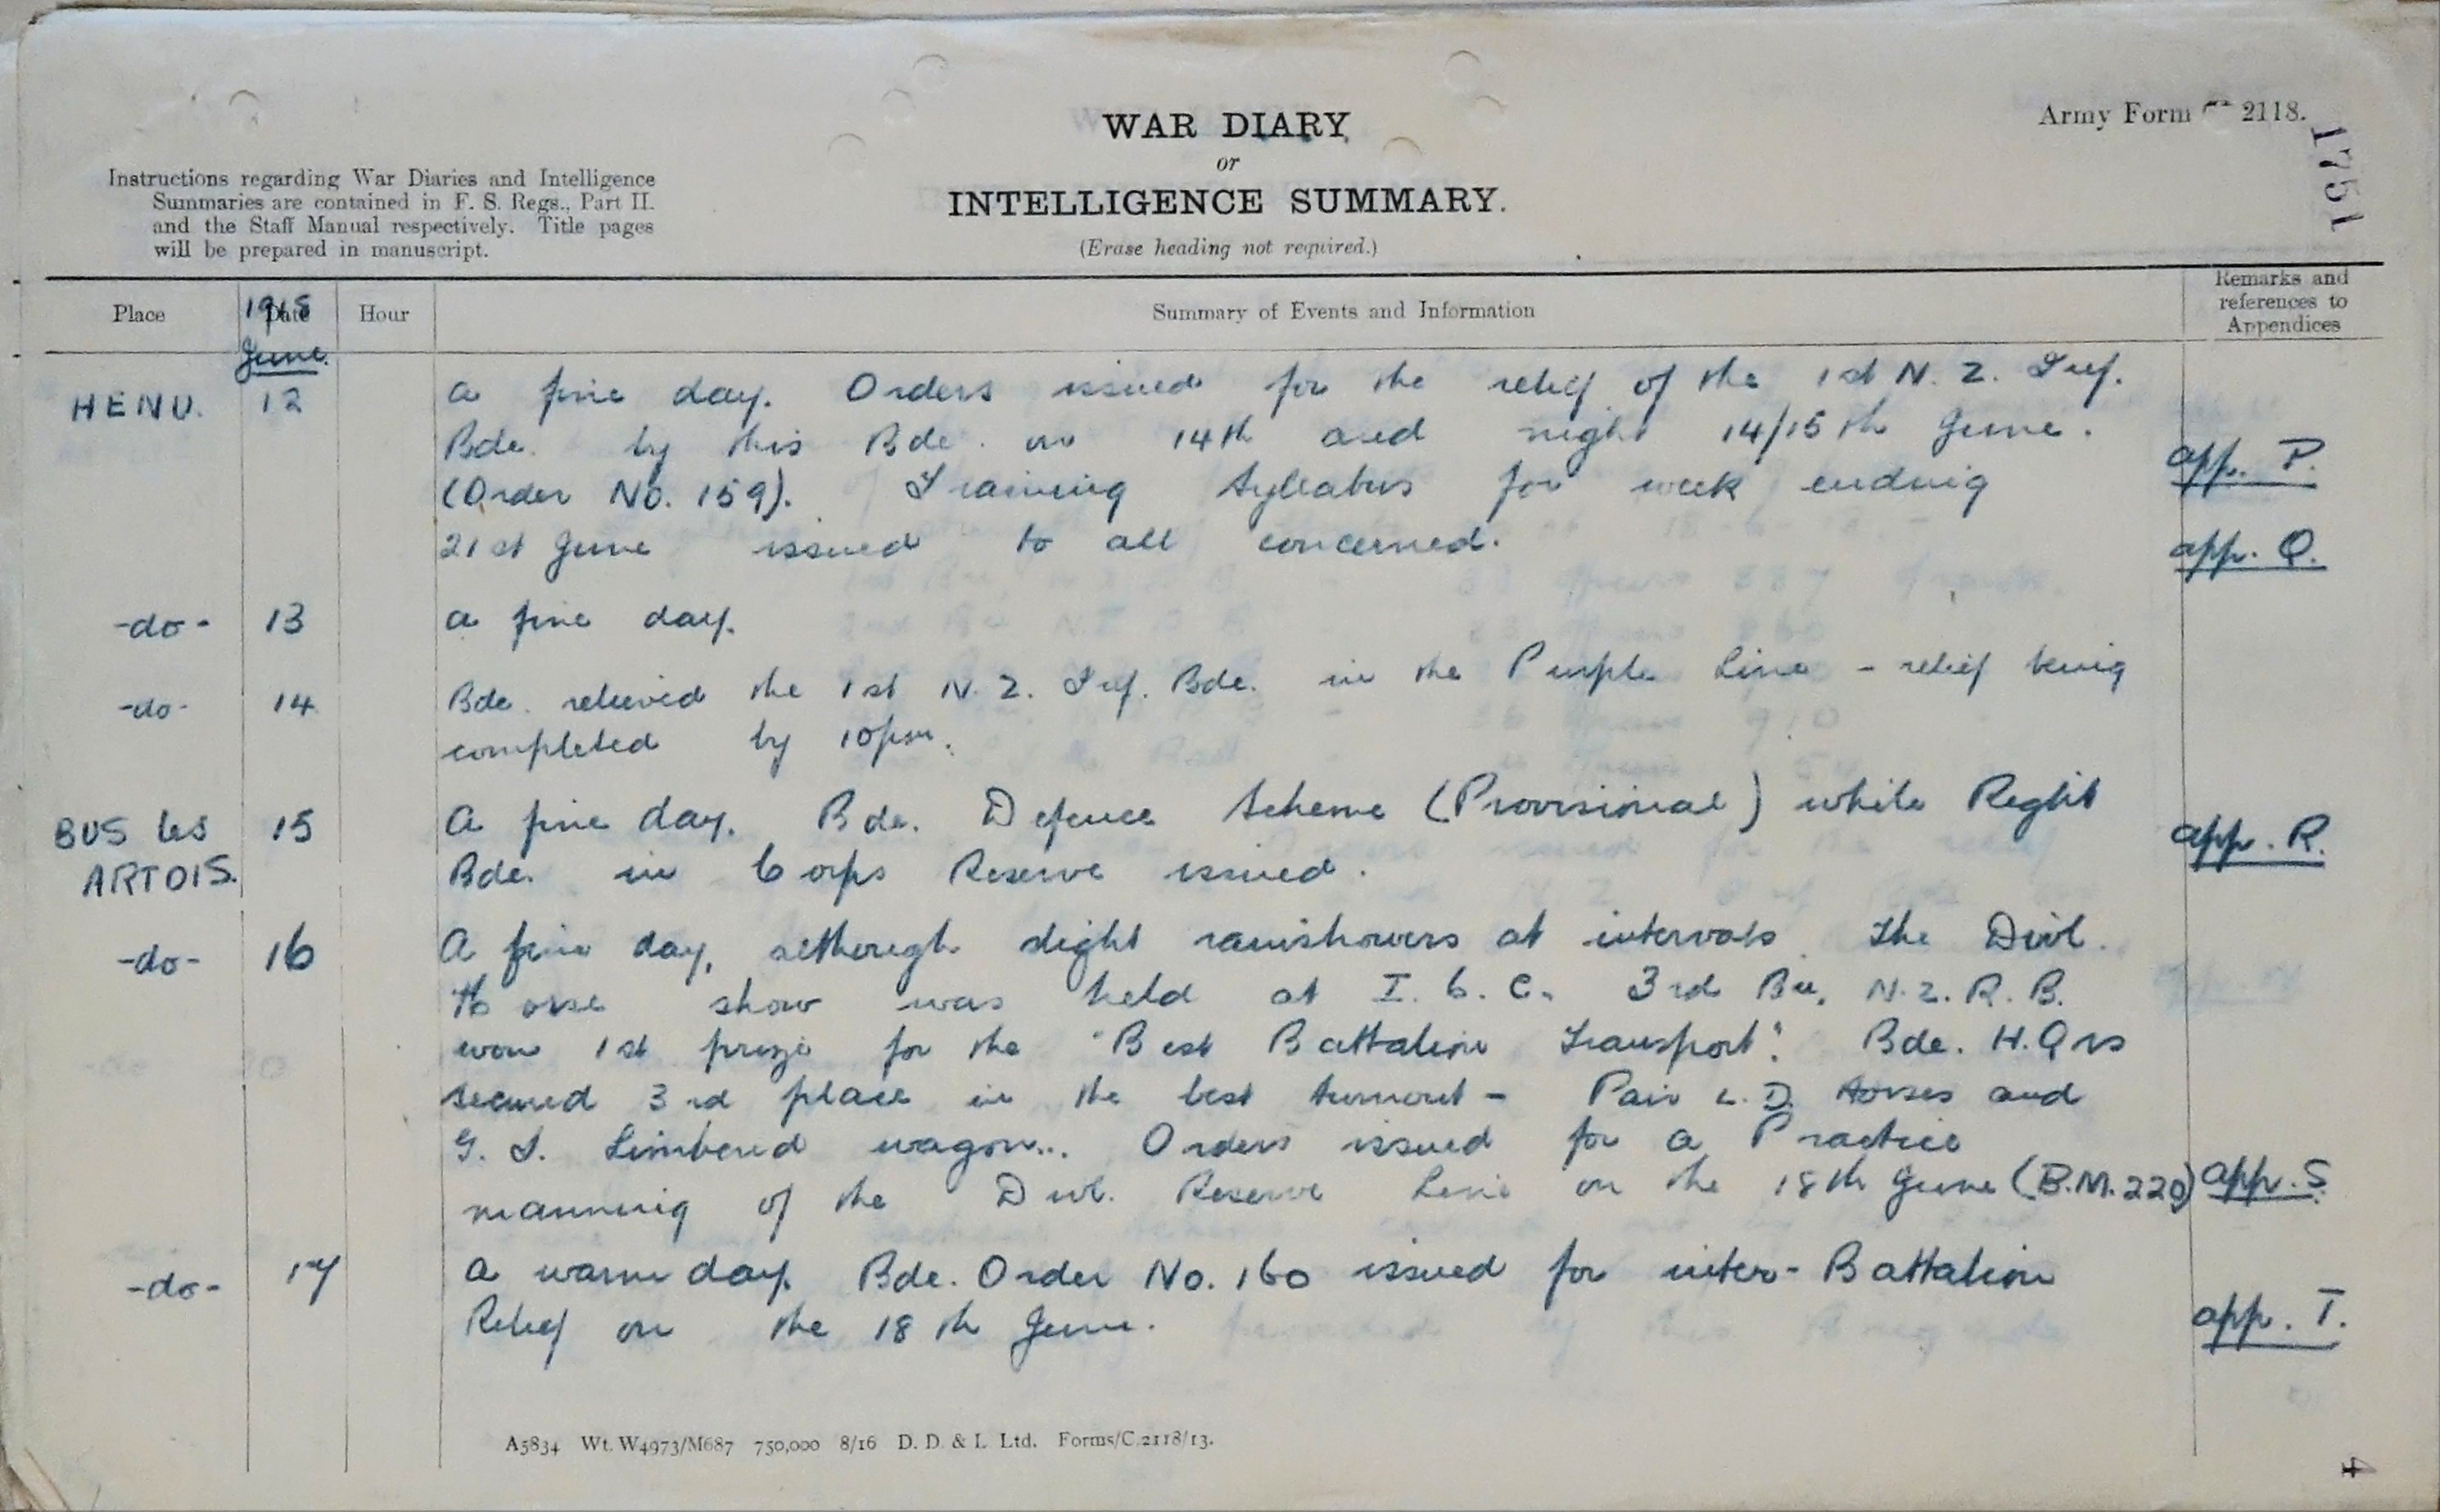 WAR DIARY
or
INTELLIGENCE SUMMARY.
(Erase heading not required.)
Army Form 2118.
1751
Instructions regarding War Diaries and Intelligence
Summaries are contained in F. S. Regs., Part II.
and the Staff Manual respectively. Title pages
will be prepared in manuscript.
Place Date Hour Summary of Events and Information Remarks and references to Appendices
1918
June.
HENU. 12 A fine day. Orders issued for the relief of the 1st N. Z. Inf.
Bde. by this Bde. on 14th and night 14/15th June. app. P.
(Order No. 159). Training Syllabus for week ending
21st June issued to all concerned. app. Q.
-do- 13 A fine day.
-do- 14 Bde. relieved the 1st N. Z. Inf. Bde. in the Purple Line - relief being
completed by 10pm.
BUS les 15 A fine day. Bde. Defence Scheme (Provisional) while Right
ARTOIS. Bde. in Corps Reserve issued. app. R.
-do- 16 A fine day, although slight rainshowers at intervals. The Divl.
Horse show was held at I. 6. C. 3rd Bn. N. Z. R. B.
won 1st prize for the "Best Battalion Transport". Bde. H.Qrs
secured 3rd place in the best turnout - Pair L. D. Horses and
G. S. Limbered wagon... Orders issued for a Practice
manning of the Divl. Reserve Line on the 18th June (B.M. 220) app. S.
-do- 17 A warm day. Bde. Order No. 160 issued for inter-Battalion
Relief on the 18th June. app. T.
A5834 Wt. W4973/M687 750,000 8/16 D. D. & L. Ltd. Forms/C.2118/13.
4